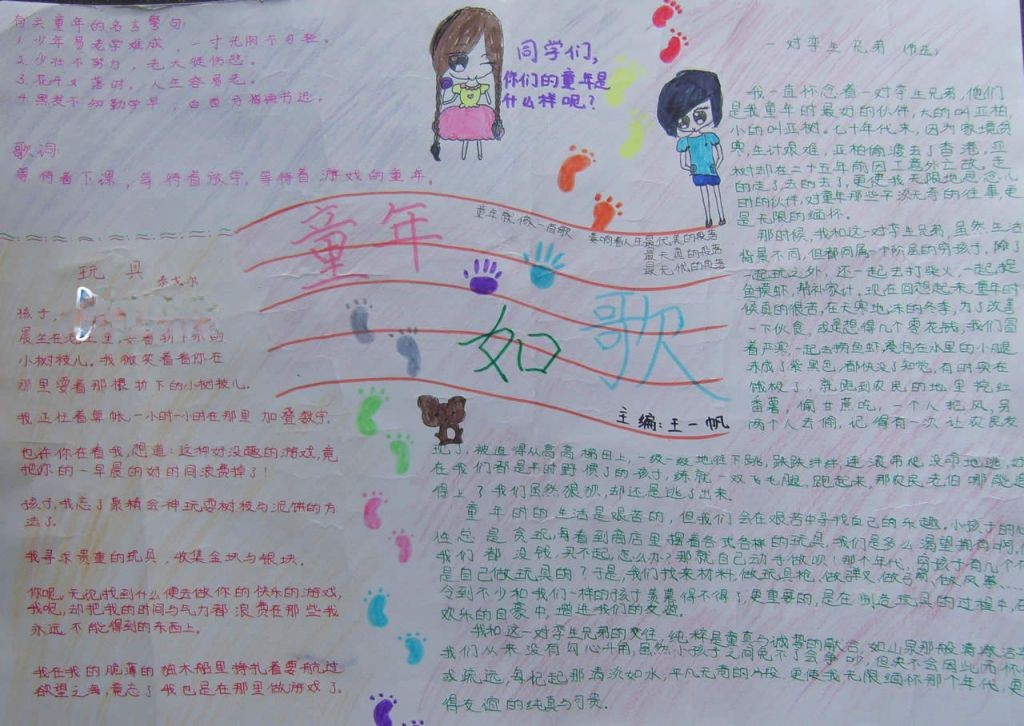 有关童年的名言警句:
1.少年易老学难成,一寸光阴不可轻。
2.少壮不努力,老大徒伤悲。
3.花开又落时,人生容易老。
4.黑发不知勤学早,白首方悔读书迟。
歌词:
等待着下课,等待着放学,等待着游戏的童年。
同学们,
你们的童年是
什么样呢?
童年
如
歌
童年就像一首歌
影响着人生最优美的段落
最天真的段落
最无忧的段落
主编:王一帆
玩具
泰戈尔
孩子,
小树枝儿。我微笑着看你在
那里耍着那根折下的小树枝儿。
我正忙着算帐,一小时一小时在那里加叠数字。
也许你在看我,想道:这种好没趣的游戏,竟
把你的一早晨的好时间浪费掉了!
孩子,我忘了聚精会神玩耍树枝与泥饼的方
法了。
我寻求贵重的玩具,收集金块与银块。
你呢,无论找到什么便去做你的快乐的游戏,
我呢,却把我的时间与气力都浪费在那些我
永远不能得到的东西上。
我在我的脆薄的独木船里挣扎着要航过
欲望之海,竟忘了我也是在那里做游戏了。
一对孪生兄弟
我一直怀念着一对孪生兄弟,他们
是我童年时最好的伙伴,大的叫亚柏,
小的叫亚树。七十年代末,因为家境贫
寒,生计艰难,亚柏偷渡去了香港,亚
树却在二十五年前因工意外亡故,走
的走了,去的去了,更使我无限地思念儿
时的伙伴,对童年那些平淡无奇的往事,更
是无限的缅怀。
那时候,我和这一对孪生兄弟,虽然生活
背景不同,但都同属一个阶层的穷孩子,除了
一起玩之外,还一起去打柴火,一起捉
鱼摸虾,帮补家计。现在回想起来,童年时
候真的很苦,在天寒地冻的冬季,为了改善
一下伙食,或是想得几个零花钱,我们冒
着严寒,一起去捞鱼虾,浸泡在水里的小腿
冻成了紫黑色,都快没了知觉,有时实在
饿极了,就跑到农民的地里挖红
番薯,偷甘蔗吃,一个人把风,另
两个人去偷,记得有一次让农民发
现了,被迫得从高高梯田上,一级一级地往下跳,跌跌绊绊,连滚带爬,没命地逃,好
在我们都是平时野惯了的孩子,练就一双飞毛腿,跑起来,那农民老伯哪能追
得上了我们虽然狼狈,却还是逃了出来。
童年的的生活是艰苦的,但我们会在艰苦中寻找自己的乐趣。小孩子的心
性总是贪玩,每看到商店里摆着各式各样的玩具,我们是多么渴望拥有啊,但
我们都没钱,买不起,怎么办?那就自己动手做呗!那个年代,穷孩子有几个不
是自己做玩具的?于是,我们找来材料,做玩具枪,做弹叉,做弓箭,做风筝……
令到不少和我们一样的孩子羡慕得不得了,更重要的,是在制造玩具的过程中,在
欢乐的自豪中,增进我们的友谊。
我和这一对孪生兄弟的交往,纯粹是童真与诚挚的融合,如山泉那般清澈洁净
我们从来没有勾心斗角,虽然小孩子之间免不了会争吵,但决不会因此而怀
或疏远,每忆起那清淡如水,平凡无奇的片段,更使我无限缅怀那个年代,更
得友谊的纯真与可贵。